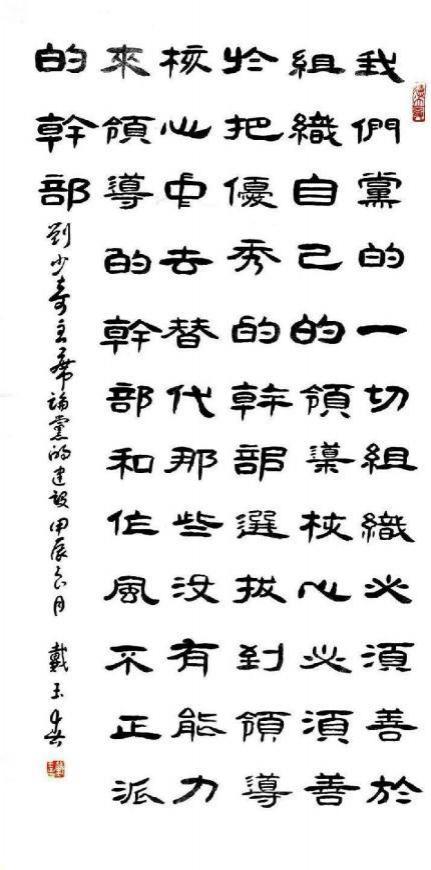 我們黨的一切組織必須善於
組織自己的領導核心必須善
於把優秀的幹部選拔到領導
核心中去替代那些没有能力
來領導的幹部和作風不正派
的幹部
劉少奇主席論黨的建設 甲辰六月 戴玉